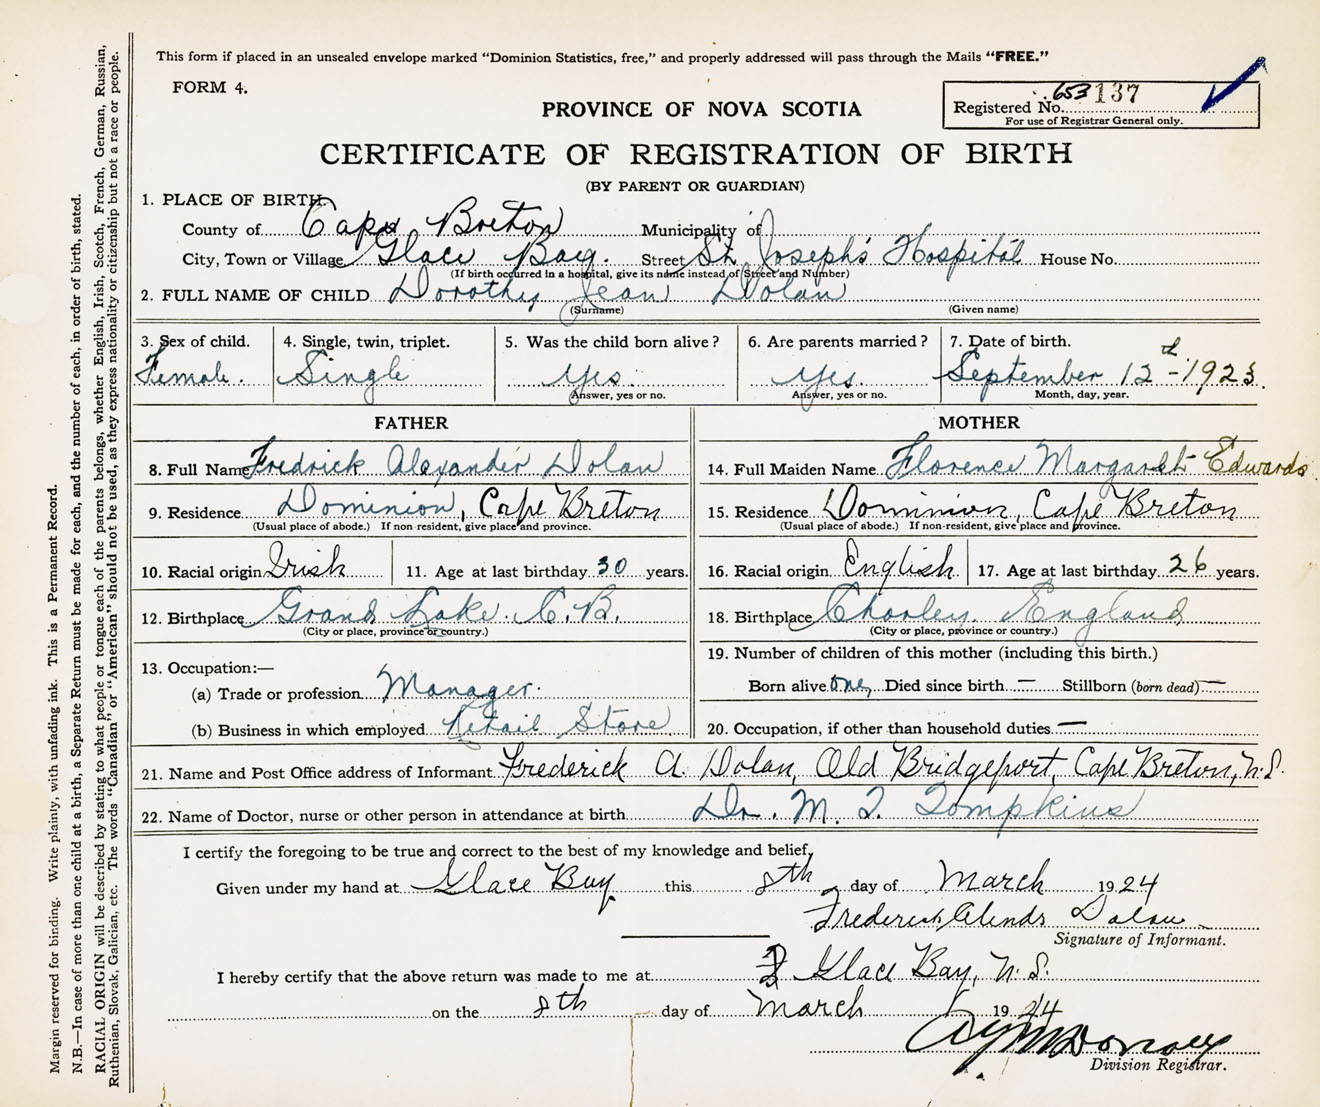 This form if placed in an unsealed envelope marked "Dominion Statistics, free," and properly addressed will pass through the Mails "FREE."
FORM 4.
PROVINCE OF NOVA SCOTIA
Registered No. 653 137
For use of Registrar General only.
CERTIFICATE OF REGISTRATION OF BIRTH
(BY PARENT OR GUARDIAN)
1. PLACE OF BIRTH:
County of Cape Breton Municipality of
City, Town or Village Glace Bay. Street St Joseph's Hospital House No.
(If birth occurred in a hospital, give its name instead of Street and Number)
2. FULL NAME OF CHILD Dorothy Jean Dolan
(Surname) (Given name)
3. Sex of child. 4. Single, twin, triplet. 5. Was the child born alive? 6. Are parents married? 7. Date of birth.
Female. Single Yes. Yes. September 12th-1923.
Answer, yes or no. Answer, yes or no. Month, day, year.
FATHER MOTHER
8. Full Name Fredrick Alexander Dolan 14. Full Maiden Name Florence Margaret Edwards
9. Residence Dominion, Cape Breton 15. Residence Dominion, Cape Breton
(Usual place of abode.) If non-resident, give place and province. (Usual place of abode.) If non-resident, give place and province.
10. Racial origin Irish 11. Age at last birthday 30 years. 16. Racial origin English 17. Age at last birthday 26 years.
12. Birthplace Grand Lake. C.B. 18. Birthplace Chorley. England
(City or place, province or country.) (City or place, province or country.)
13. Occupation:— 19. Number of children of this mother (including this birth.)
(a) Trade or profession Manager. Born alive one, Died since birth — Stillborn (born dead) —
(b) Business in which employed Retail Store 20. Occupation, if other than household duties —
21. Name and Post Office address of Informant Frederick A. Dolan, Old Bridgeport, Cape Breton, N.S.
22. Name of Doctor, nurse or other person in attendance at birth Dr. M. T. Tompkins
I certify the foregoing to be true and correct to the best of my knowledge and belief,
Given under my hand at Glace Bay this 8th day of March 1924
Frederick Dolan
Signature of Informant.
I hereby certify that the above return was made to me at Glace Bay, N.S.
on the 8th day of March 1924
Division Registrar.
Margin reserved for binding. Write plainly, with unfading ink. This is a Permanent Record.
N.B.—In case of more than one child at a birth, a Separate Return must be made for each, and the number of each, in order of birth, stated.
RACIAL ORIGIN will be described by stating to what people or tongue each of the parents belongs, whether English, Irish, Scotch, French, German, Russian,
Ruthenian, Slovak, Galician, etc. The words "Canadian" or "American" should not be used, as they express nationality or citizenship but not a race or people.